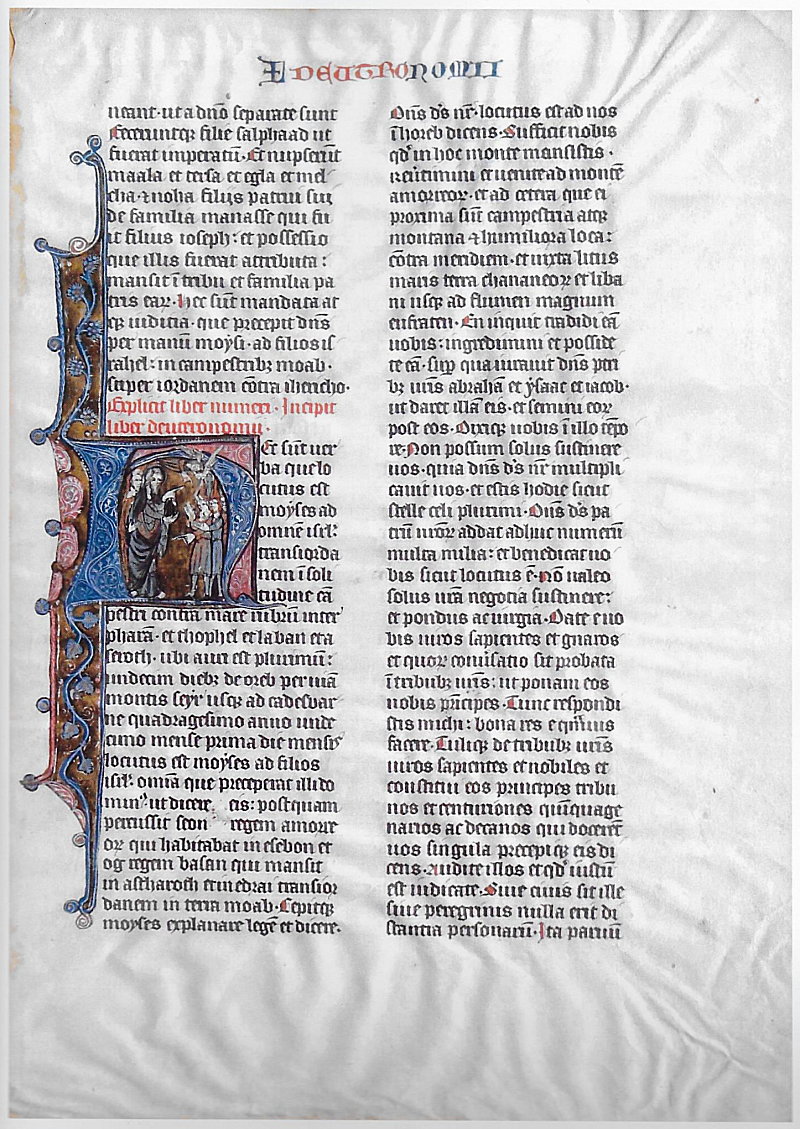 DEUTRONOMII
neant· ut a dno separate sunt
feceruntqꝫ filie salphaad ut
fuerat imperatū· Et nupserūt
maala et tersa et egla et mel
cha· ⁊ noha filijs patrui sui
de familia manasse qui fu
it filius ioseph: et possessio
que illis fuerat attributa:
mansit ī tribu et familia pa
tris eaꝝ· Hec sūt mandata at
qꝫ iudicia· que precepit dns̄
per manū moysi· ad filios is
rahel: in campestribꝫ moab·
super iordanem cōtra ihericho·
Explicit liber numeri· Incipit
liber deuteronomii·
Hec sūt uer
ba que lo
cutus est
moyses ad
omnē isrl̄
transiorda
nem ī soli
tudine cā
pestri contra mare rubrū inter
pharā· et thophel et laban et a
seroth· ubi auri est plurimū:
undecim diebꝫ de oreb per uiā
montis seyr usqꝫ ad cadesbar
ne quadragesimo anno unde
cimo mense prima die mensis
locutus est moyses ad filios
isrl̄· omīa que preceperat illi do
minꝰ ut diceret eis: postquam
percussit seon regem amorre
oꝝ qui habitabat in esebon et
og regem basan qui mansit
in astharoth et in edrai transior
danem in terra moab· Cepitqꝫ
moyses explanare legē et dicere·
Dn̄s ds̄ nr̄· locutus est ad nos
ī horeb dicens· Sufficit nobis
qd̄ in hoc monte mansistis·
reūtimini et uenite ad montē
amorreoꝝ· et ad cetera que ei
proxima sūt campestria atqꝫ
montana ⁊ humiliora loca:
cōtra meridiem· et iuxta litus
maris terrā chananeoꝝ et liba
ni usqꝫ ad flumen magnum
eufraten· En inquit tradidi eā
uobis: ingredimini et posside
te eā· sup̄ qua iurauit dn̄s pr̄i
bꝫ ur̄is abrahā et ysaac et iacob·
ut daret illā eis· et semini eoꝝ
post eos· Dixiqꝫ uobis ī illo tēpo
re· Non possum solus sustinere
uos· quia dn̄s ds̄ nr̄ multipli
cauit uos· et estis hodie sicut
stelle celi plurimi· Dn̄s ds̄ pa
trū uroꝝ addat ad hūc numerū
multa milia: et benedicat uo
bis sicut locutus ē· Nō ualeo
solus ur̄a negotia sustinere:
et pondus ac iurgia· Date e uo
bis uiros sapientes et gnaros
et quoꝝ conuersatio sit probata
ī tribubꝫ ur̄is: ut ponam eos
uobis principes· Tunc respondi
stis michi: bona res ē quā uis
facere· Tuliqꝫ de tribubꝫ ur̄is
uiros sapientes et nobiles et
constitui eos principes tribu
nos et centuriones quīquage
narios ac decanos qui docerēt
uos singula precepiqꝫ eis di
cens· Audite illos et qd̄ iustū
est iudicate· Siue ciuis sit ille
siue peregrinus nulla erit di
stantia personarū· Ita paruū